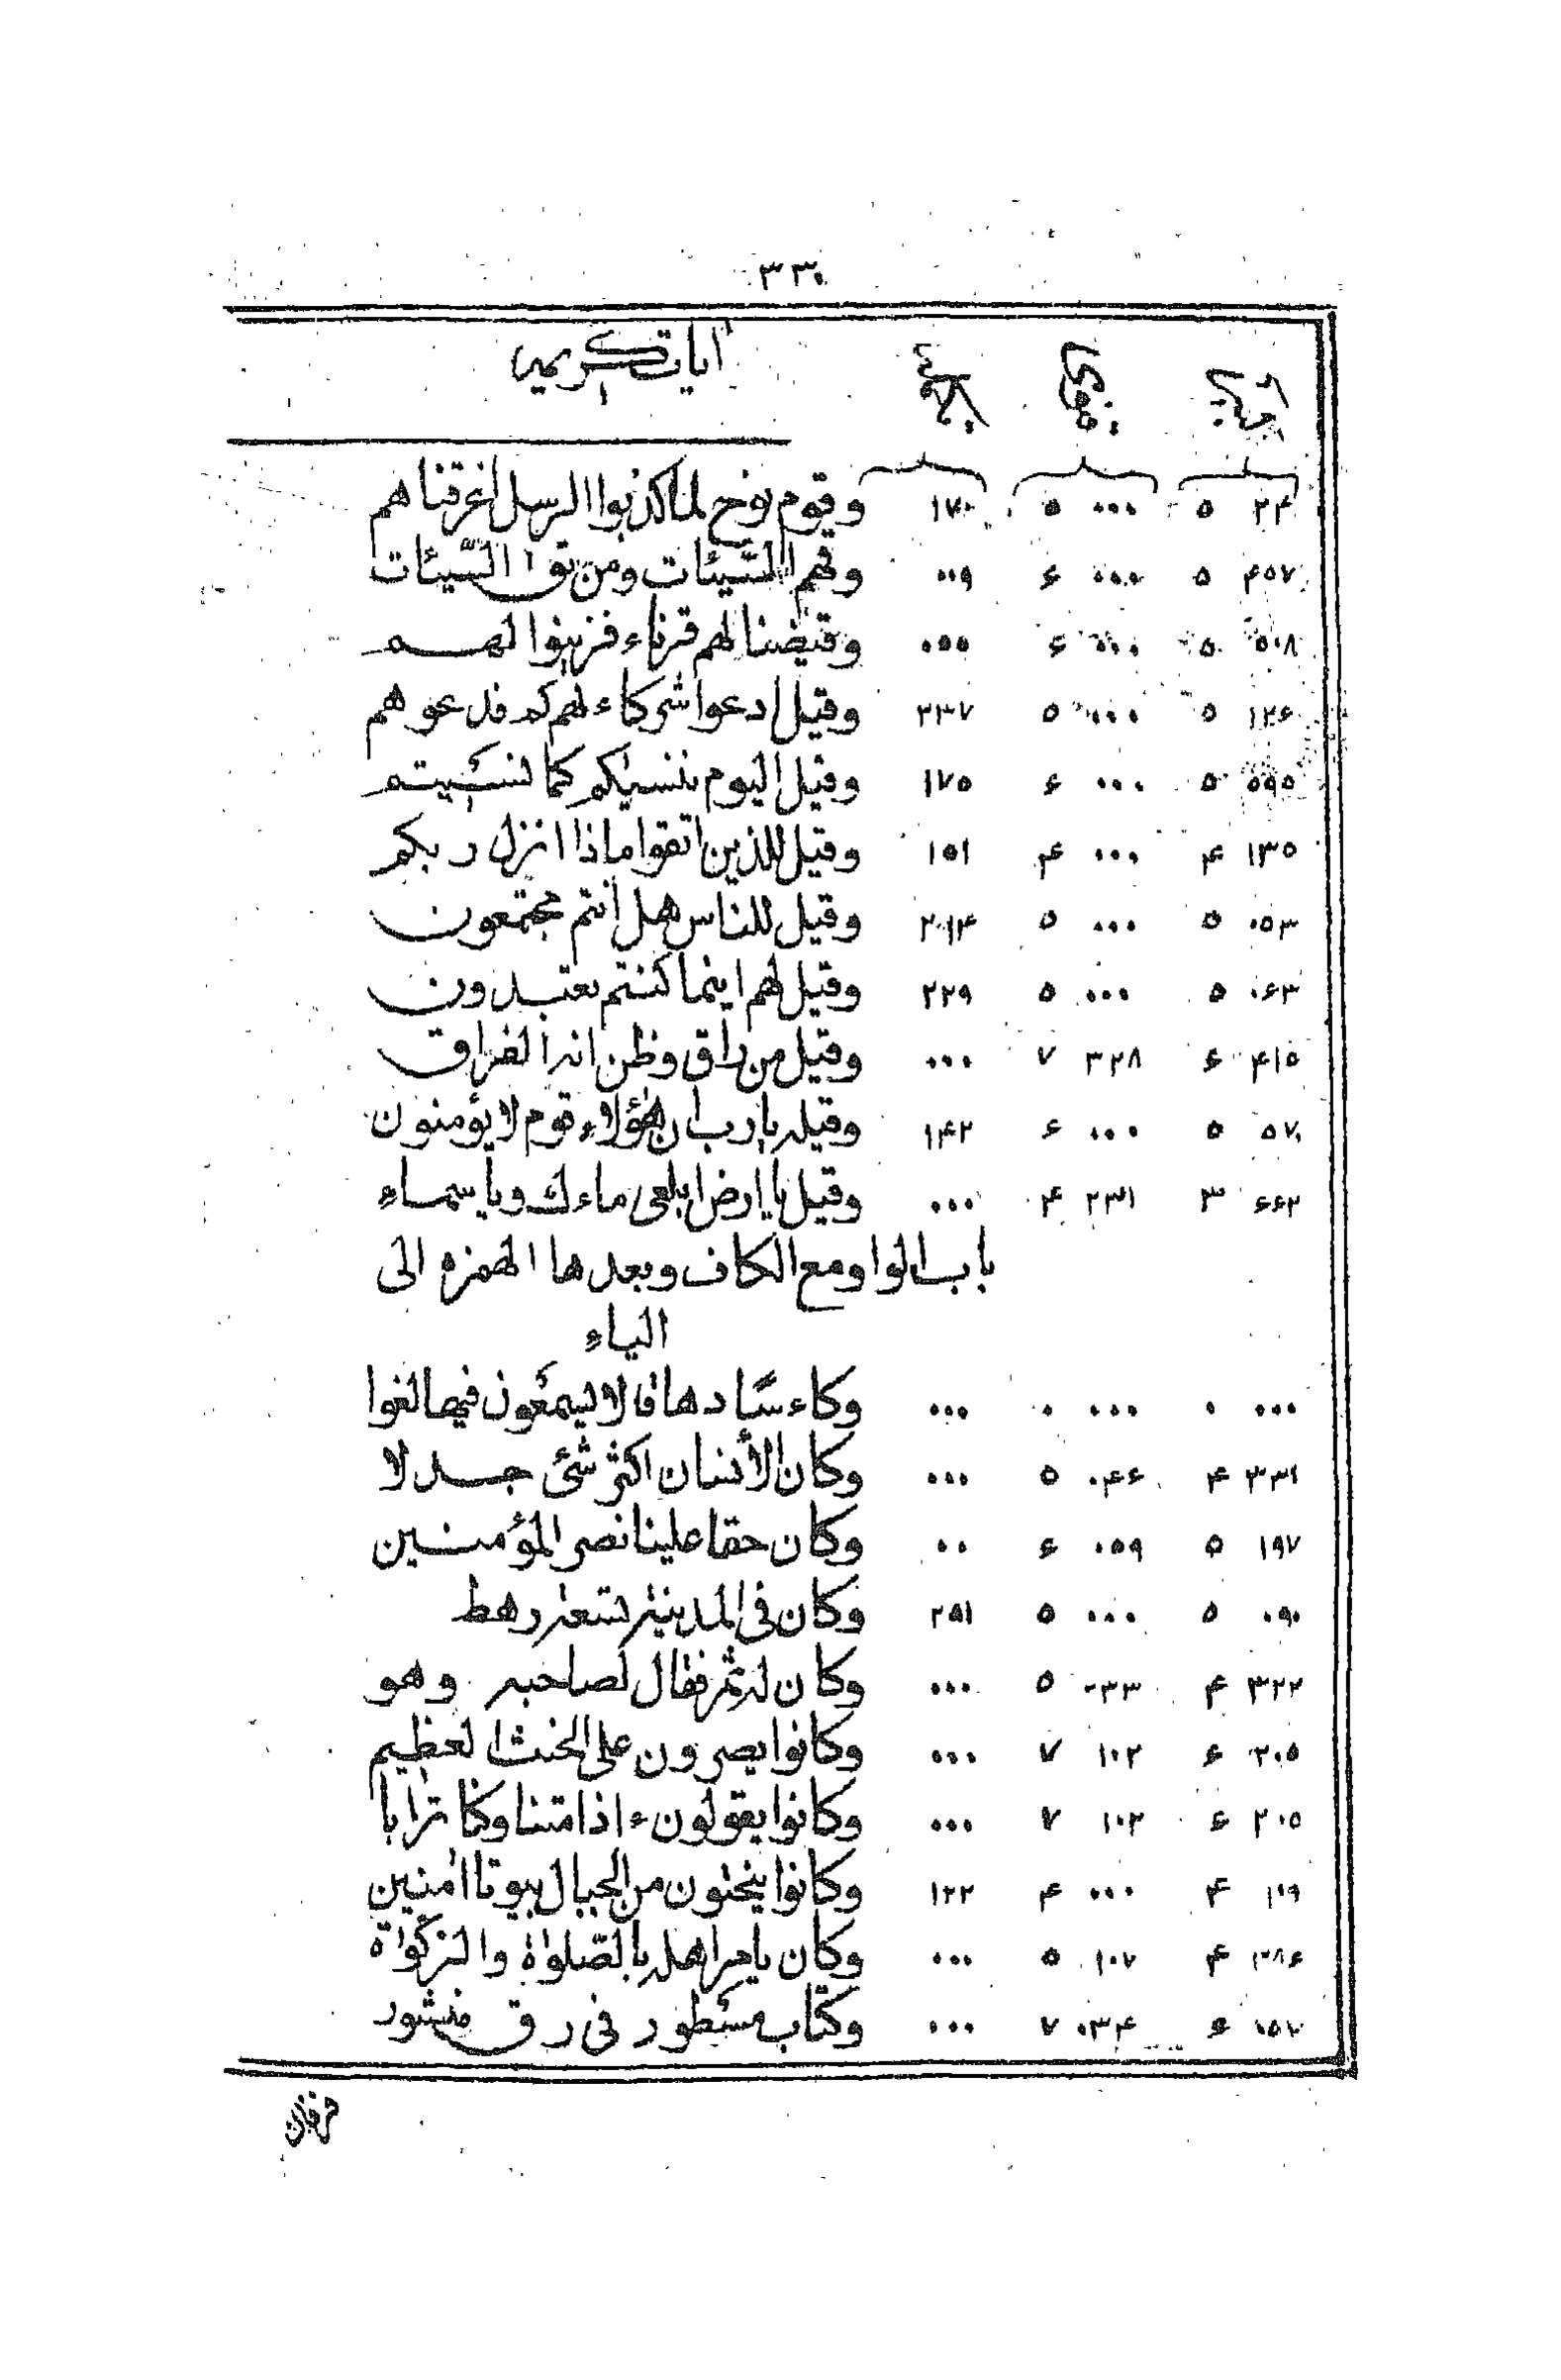 ٣٣٠
ايات كريمه
٢٤ ٥ ٠٠٠ ٥ ١٧٠ وقوم نوح لما كذبوا الرسل اغرقناهم
۴۵٧ ٥ ٠٠٠ ۶ ٠٠٩ وقهم السّيئات ومن تق السّيئات
٥٠٨ ٥ ٠٠٠ ۶ ٠٥٥ وقيضنا لهم قرناء فزينوا لهم
١٢۶ ٥ ٠٠٠ ٥ ٢٣٧ وقيل ادعوا شركاءهم كم فدعوهم
٥٩٥ ٥ ٠٠٠ ۶ ١٧٥ وقيل اليوم ننسيكم كما نسيتم
١٣٥ ۴ ٠٠٠ ۴ ١٥١ وقيل للذين اتقوا ماذا انزل ربكم
٠٥٣ ٥ ٠٠٠ ٥ ٢١۴ وقيل للناس هل انتم مجتمعون
٠۶٣ ٥ ٠٠٠ ٥ ٢٢٩ وقيل لهم اينما كنتم تعتبدون
۴١٥ ۶ ٣٢٨ ٧ ٠٠٠ وقيل من راق وظن انه الفراق
٥٧ ٥ ٠٠٠ ۶ ١۴٢ وقيله يارب ان هؤلاء قوم لا يؤمنون
۶۶٢ ٣ ٢٣١ ۴ ٠٠٠ وقيل يا ارض ابلعى ماءك ويا سماء
باب الواو مع الكاف وبعدها الهمزه الى
الياء
٠٠٠ ٠ ٠٠٠ ٠ ٠٠٠ وكاءسًا دهاقا لا يسمعون فيها لغوا
٣٣١ ۴ ٠۴۶ ٥ ٠٠٠ وكان الأنسان اكثر شئ جدلا
١٩٧ ٥ ٠٥٩ ۶ ٠٠ وكان حقا علينا نصر المؤمنين
٠٩٠ ٥ ٠٠٠ ٥ ٢٥١ وكان فى المدينة تسعة رهط
٣٢٢ ۴ ٠٣٣ ٥ ٠٠٠ وكان له ثمر فقال لصاحبه وهو
٢٠٥ ۶ ١٠٢ ٧ ٠٠٠ وكانوا يصرون على الحنث العظيم
٢٠٥ ۶ ١٠٢ ٧ ٠٠٠ وكانوا يقولون ءاذا متنا وكنا ترابا
١٠٩ ۴ ٠٠٠ ۴ ١٢٢ وكانوا ينحتون من الجبال بيوتا امنين
٣٨۶ ۴ ١٠٧ ٥ ٠٠٠ وكان يامر اهله بالصّلوٰة والزكوٰة
٠٥٧ ۶ ٠٣۴ ٧ ٠٠٠ وكتاب مسطور فى رق منشور